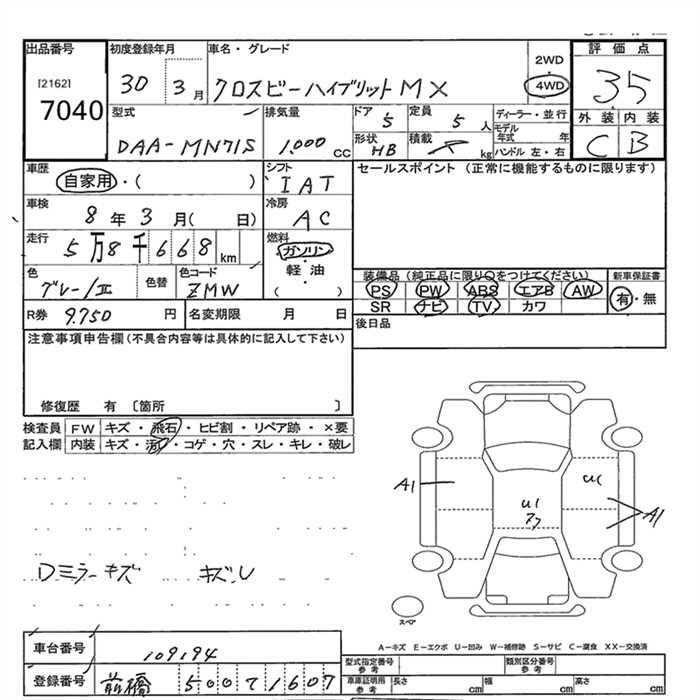 出品番号 初度登録年月 車名・グレード 2WD 評価点
[2162] 30 3月 クロスビーハイブリットMX 4WD 35
7040 型式 排気量 ドア 定員 ディーラー・並行 外装 内装
DAA-MN71S 1,000 CC 5 5人 モデル年式 年 C B
形状 HB 積載 kg ハンドル 左・右
車歴 シフト セールスポイント (正常に機能するものに限ります)
自家用・( ) IAT
車検 冷房
8年3月( 日) AC
走行 燃料
5万8千668km ガソリン
軽油
( )
色 色替 色コード 装備品 (純正品に限り○をつけてください) 新車保証書
グレー/II ZMW PS PW ABS エアB AW 有・無
R券 9.750円 名変期限 月 日 SR ナビ TV カワ
注意事項申告欄(不具合内容等は具体的に記入して下さい) 後日品
修復歴 有 〔箇所 〕
検査員 FW キズ・飛石・ヒビ割・リペア跡・×要
記入欄 内装 キズ・汚れ・コゲ・穴・スレ・キレ・破レ
A1 U1 A1
Dミラーキズ キズU
スペア
A-キズ E-エクボ U-凹み W-補修跡 S-サビ C-腐食 XX-交換済
車台番号 109194
型式指定番号 参考 類別区分番号 参考
登録番号 前橋 500 ｿ1607
車庫証明用 参考 長さ cm 幅 cm 高さ cm